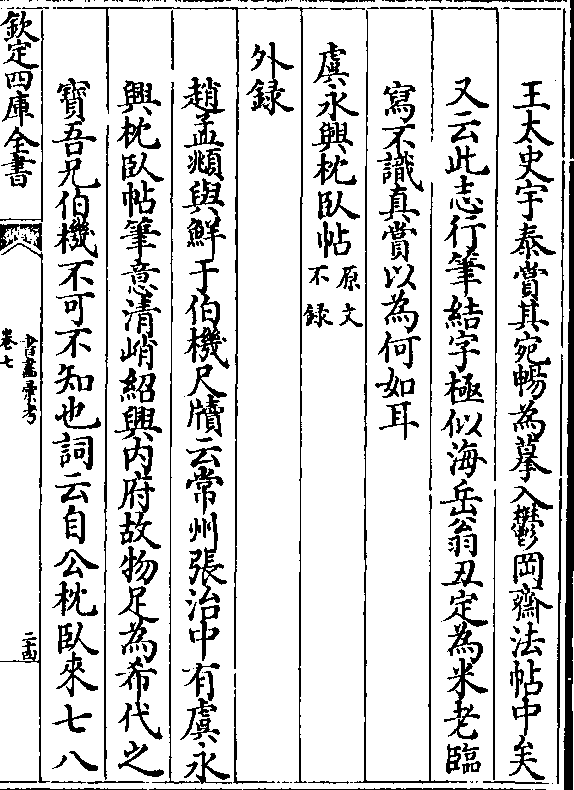 王太史宇泰賞其宛暢為摹入鬱岡齋法帖中矣
又云此志行筆結字極似海岳翁丑定為米老臨
寫不識真賞以為何如耳
虞永興枕臥帖原文不録
外録
趙孟頫與鮮于伯機尺牘云常州張治中有虞永
興枕臥帖筆意清峭紹興內府故物足為希代之
寶吾兄伯機不可不知也詞云自公枕臥來七八
欽定四庫全書
書畫彙考
卷七
二十四